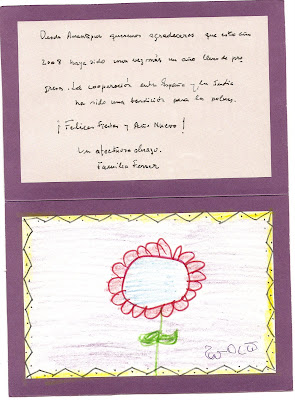 Desde Anantapur queremos agradeceros que este año
2008 haya sido una vez más un año lleno de pro
gresos. La cooperación entre España y la India
ha sido una bendición para los pobres.
¡Felices Fiestas y Año Nuevo!
Un afectuoso abrazo.
Familia Ferrer